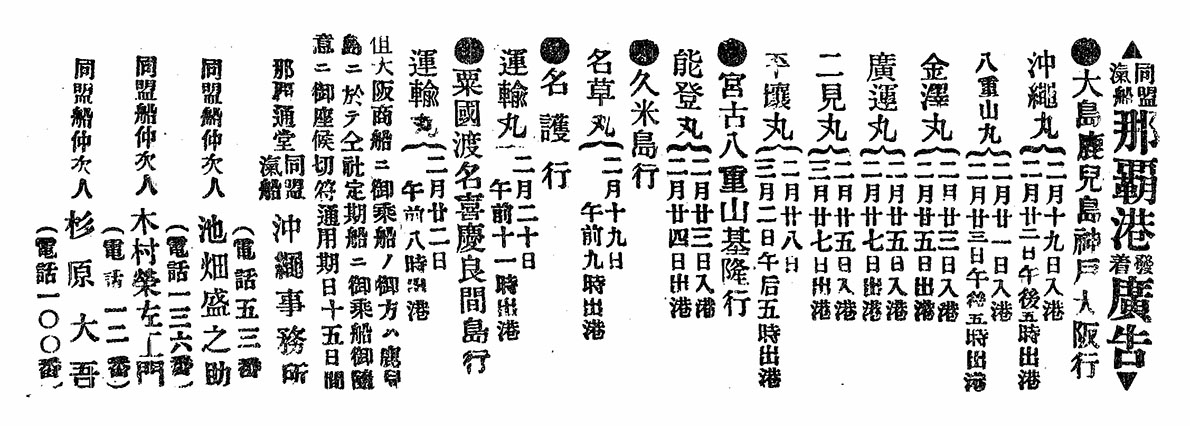 ▲同盟汽船那覇港發着廣告▼
●大島鹿兒島神戸大阪行
沖繩丸{二月十九日入港
二月廿二日午後五時出港
八重山丸{二月廿一日入港
二月廿三日午後五時出港
金澤丸{二月廿三日入港
二月廿五日出港
廣運丸{二月廿五日入港
二月廿七日出港
二見丸{二月廿五日入港
三月廿七日出港
平壤丸{二月廿八日
三月二日午后五時出港
●宮古八重山基隆行
能登丸{二月廿三日入港
二月廿四日出港
●久米島行
名草丸{二月十九日
午前九時出港
●名護行
運輸丸{二月二十日
午前十一時出港
●粟國渡名喜慶良間島行
運輸丸{二月廿二日
午前八時出港
但大阪商船ニ御乘船ノ御方ハ鹿兒
島ニ於テ仝社定期船ニ御乘船御隨
意ニ御座候切符通用期日十五日間
那覇通堂
同盟汽船沖繩事務所
(電話五三番
同盟船仲次人 池畑盛之助
(電話一三六番)
同盟船仲次人 木村榮左工門
(電話一二番)
同盟船仲次人 杉原大吾
(電話一〇〇番)